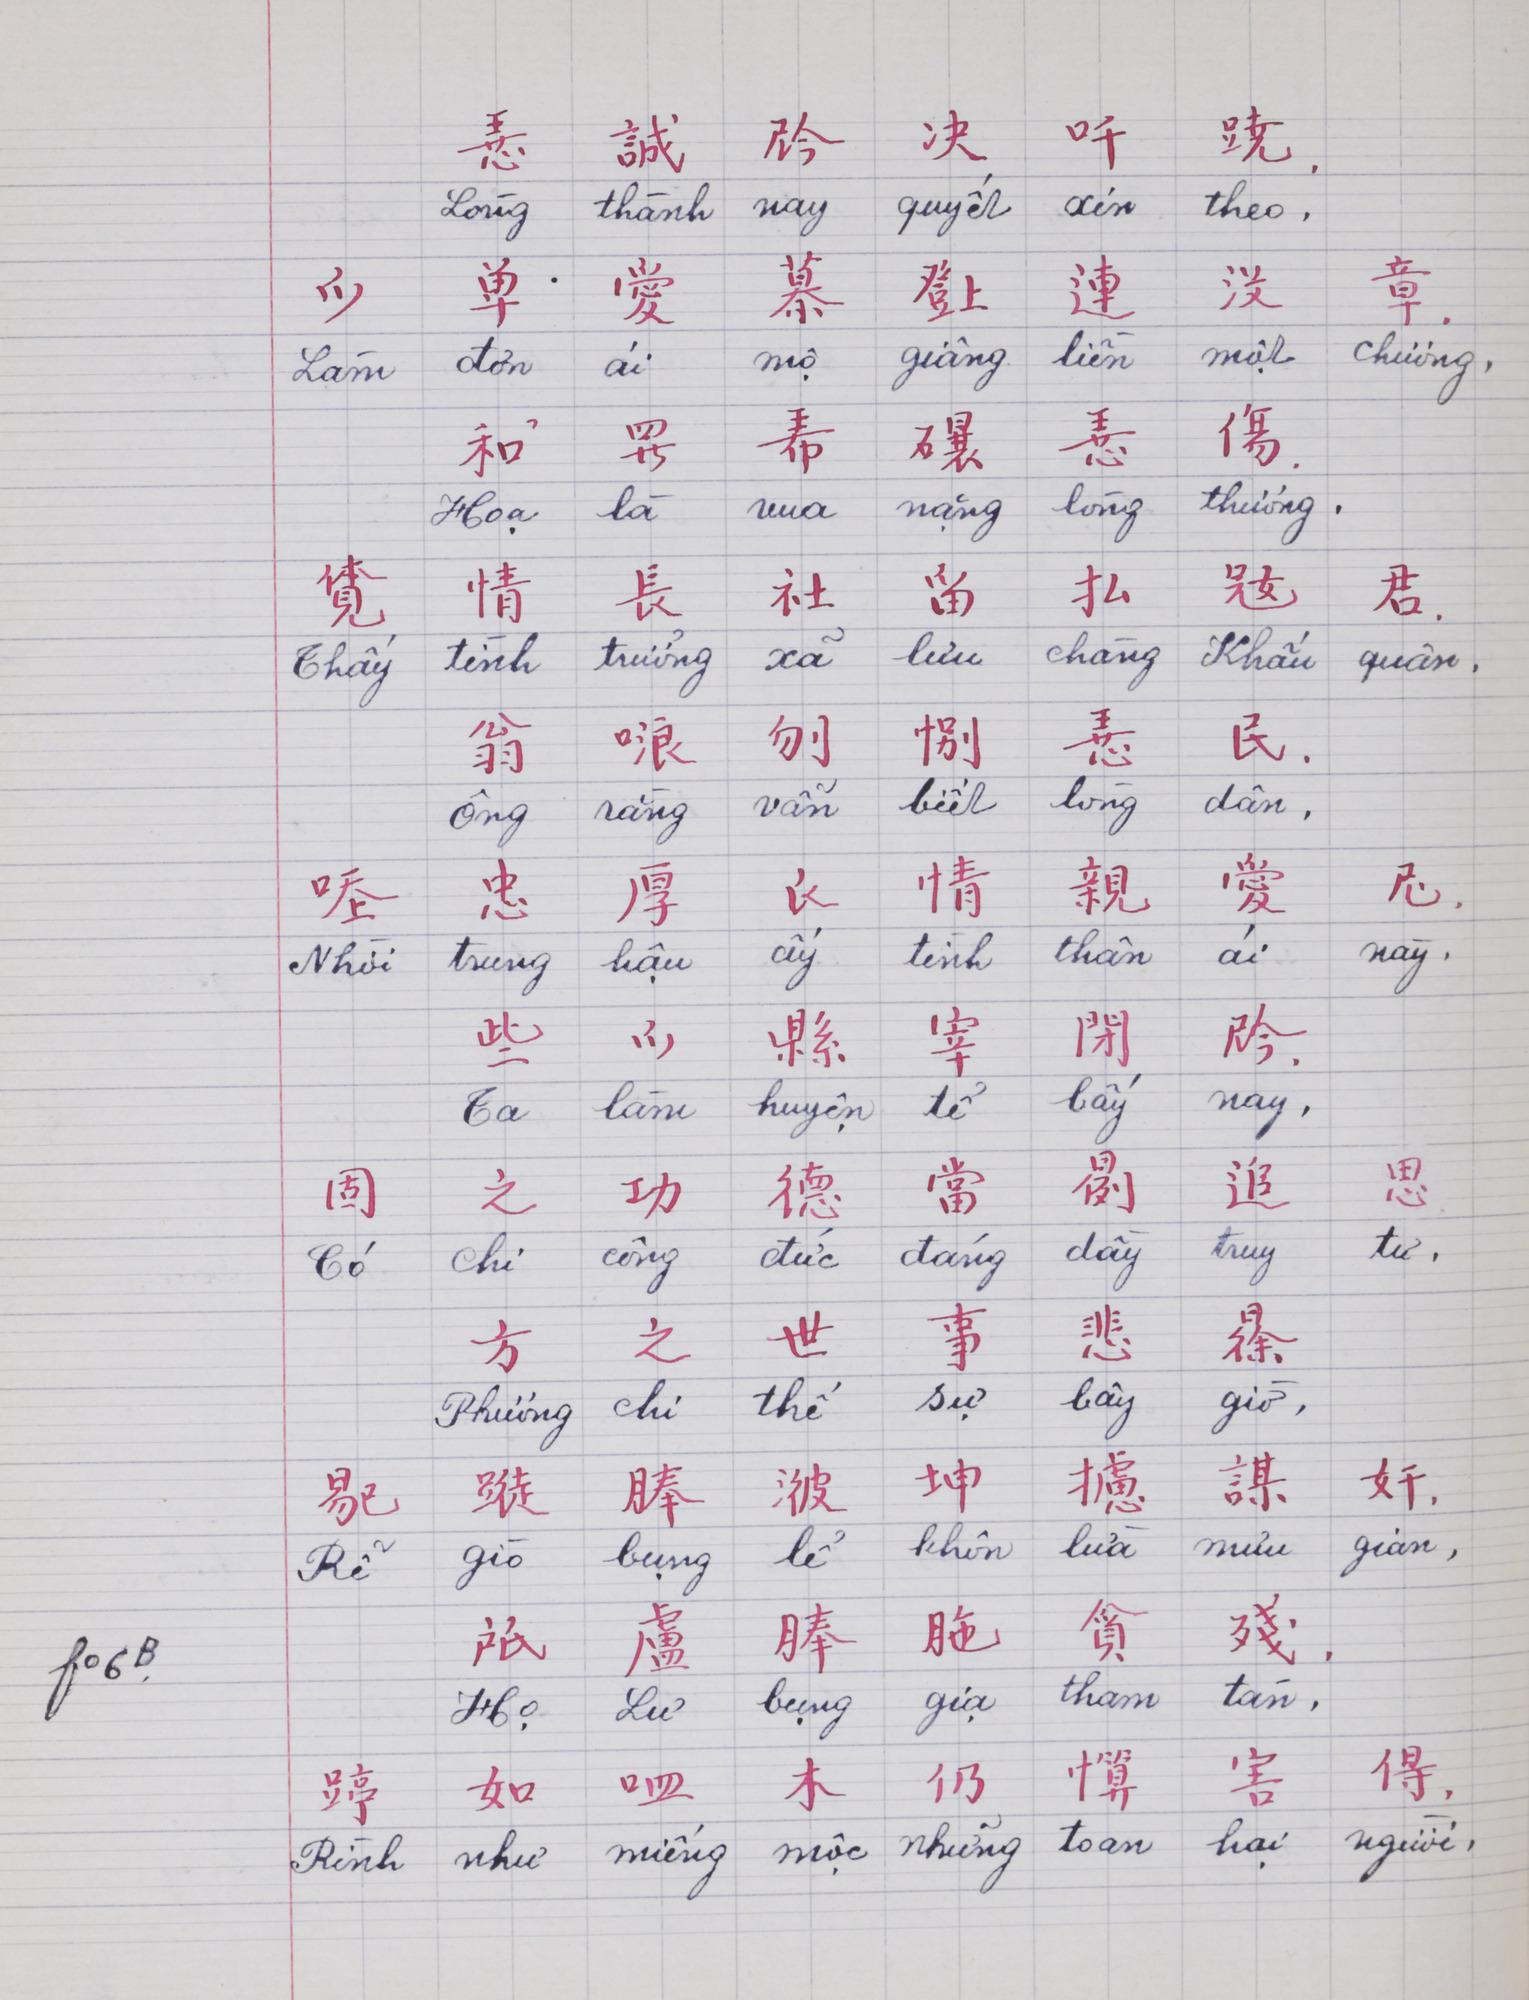 𢚸 誠 𫢩 决 吀 蹺.
Lòng thành nay quyết xin theo,
𪜀 单 愛 慕 𨖅 連 沒 章.
Làm đơn ái mộ giâng liền một chương,
和 𱺵 𢂜 𥗾 𢚸 傷.
Hoạ là vua nặng lòng thương,
覽 情 長 社 留 払 冦 君.
Thấy tình trưởng xã lưu chàng Khấu quân,
翁 哴 刎 別 𢚸 民.
Ông rằng vẫn biết lòng dân,
𠰃 忠 厚 𧘇 情 親 愛 尼.
Nhời trung hậu ấy tình thân ái này,
些 𪜀 縣 宰 閉 𫢩.
Ta làm huyện tể bấy nay,
固 之 功 德 當 𠞹 追 思
Có chi công đức đáng dầy truy tư,
方 之 世 事 悲 𣇞
Phương chi thế sự bây giờ,
易 蹤 𦢄 𣳔 坤 攄 謀 奸.
Rễ giò bụng lể khôn lừa mưu gian,
𢩜 盧 𦢄 𦧜 貪 殘.
Họ Lư bụng giạ tham tàn,
fo 6B.
𨂔 如 𠰘 木 仍 惮 害 得.
Rình như miếng mộc những toan hại người,